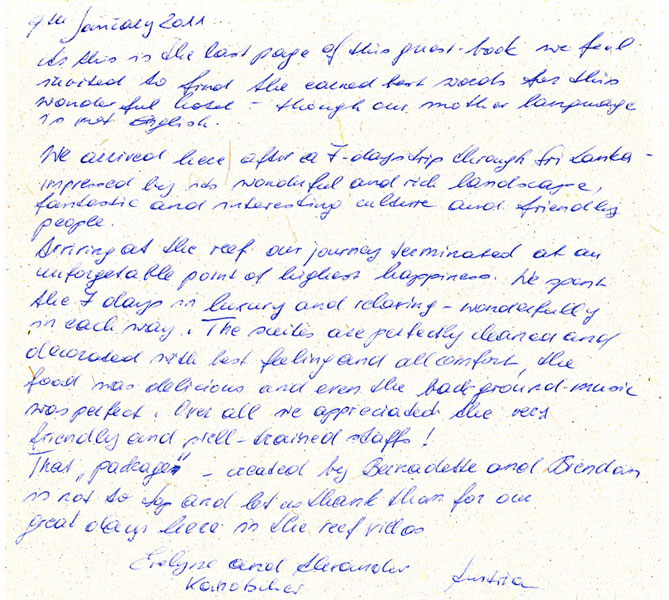 9th January 2011
As this is the last page of this guest-book we feel
invited to find the best words for this
wonderful hotel - though our mother language
is not English.
We arrived here after a 7-days trip through Sri Lanka -
impressed by its wonderful and rich landscape,
fantastic and interesting culture and friendly
people.
Arriving at the reef our journey terminated at an
unforgetable point of highest happiness. We spent
the 7 days in luxury and relaxing - wonderfully
in each way. The suites are perfectly cleaned and
decorated with best feeling and all comfort, the
food was delicious and even the back-ground-music
was perfect. Over all we appreciated the very
friendly and well-trained staffs!
That "package" - created by Bernadette and Brendan
is not to top and let us thank them for our
great days here in the reef villas
Evelyne and Alexander
Austria